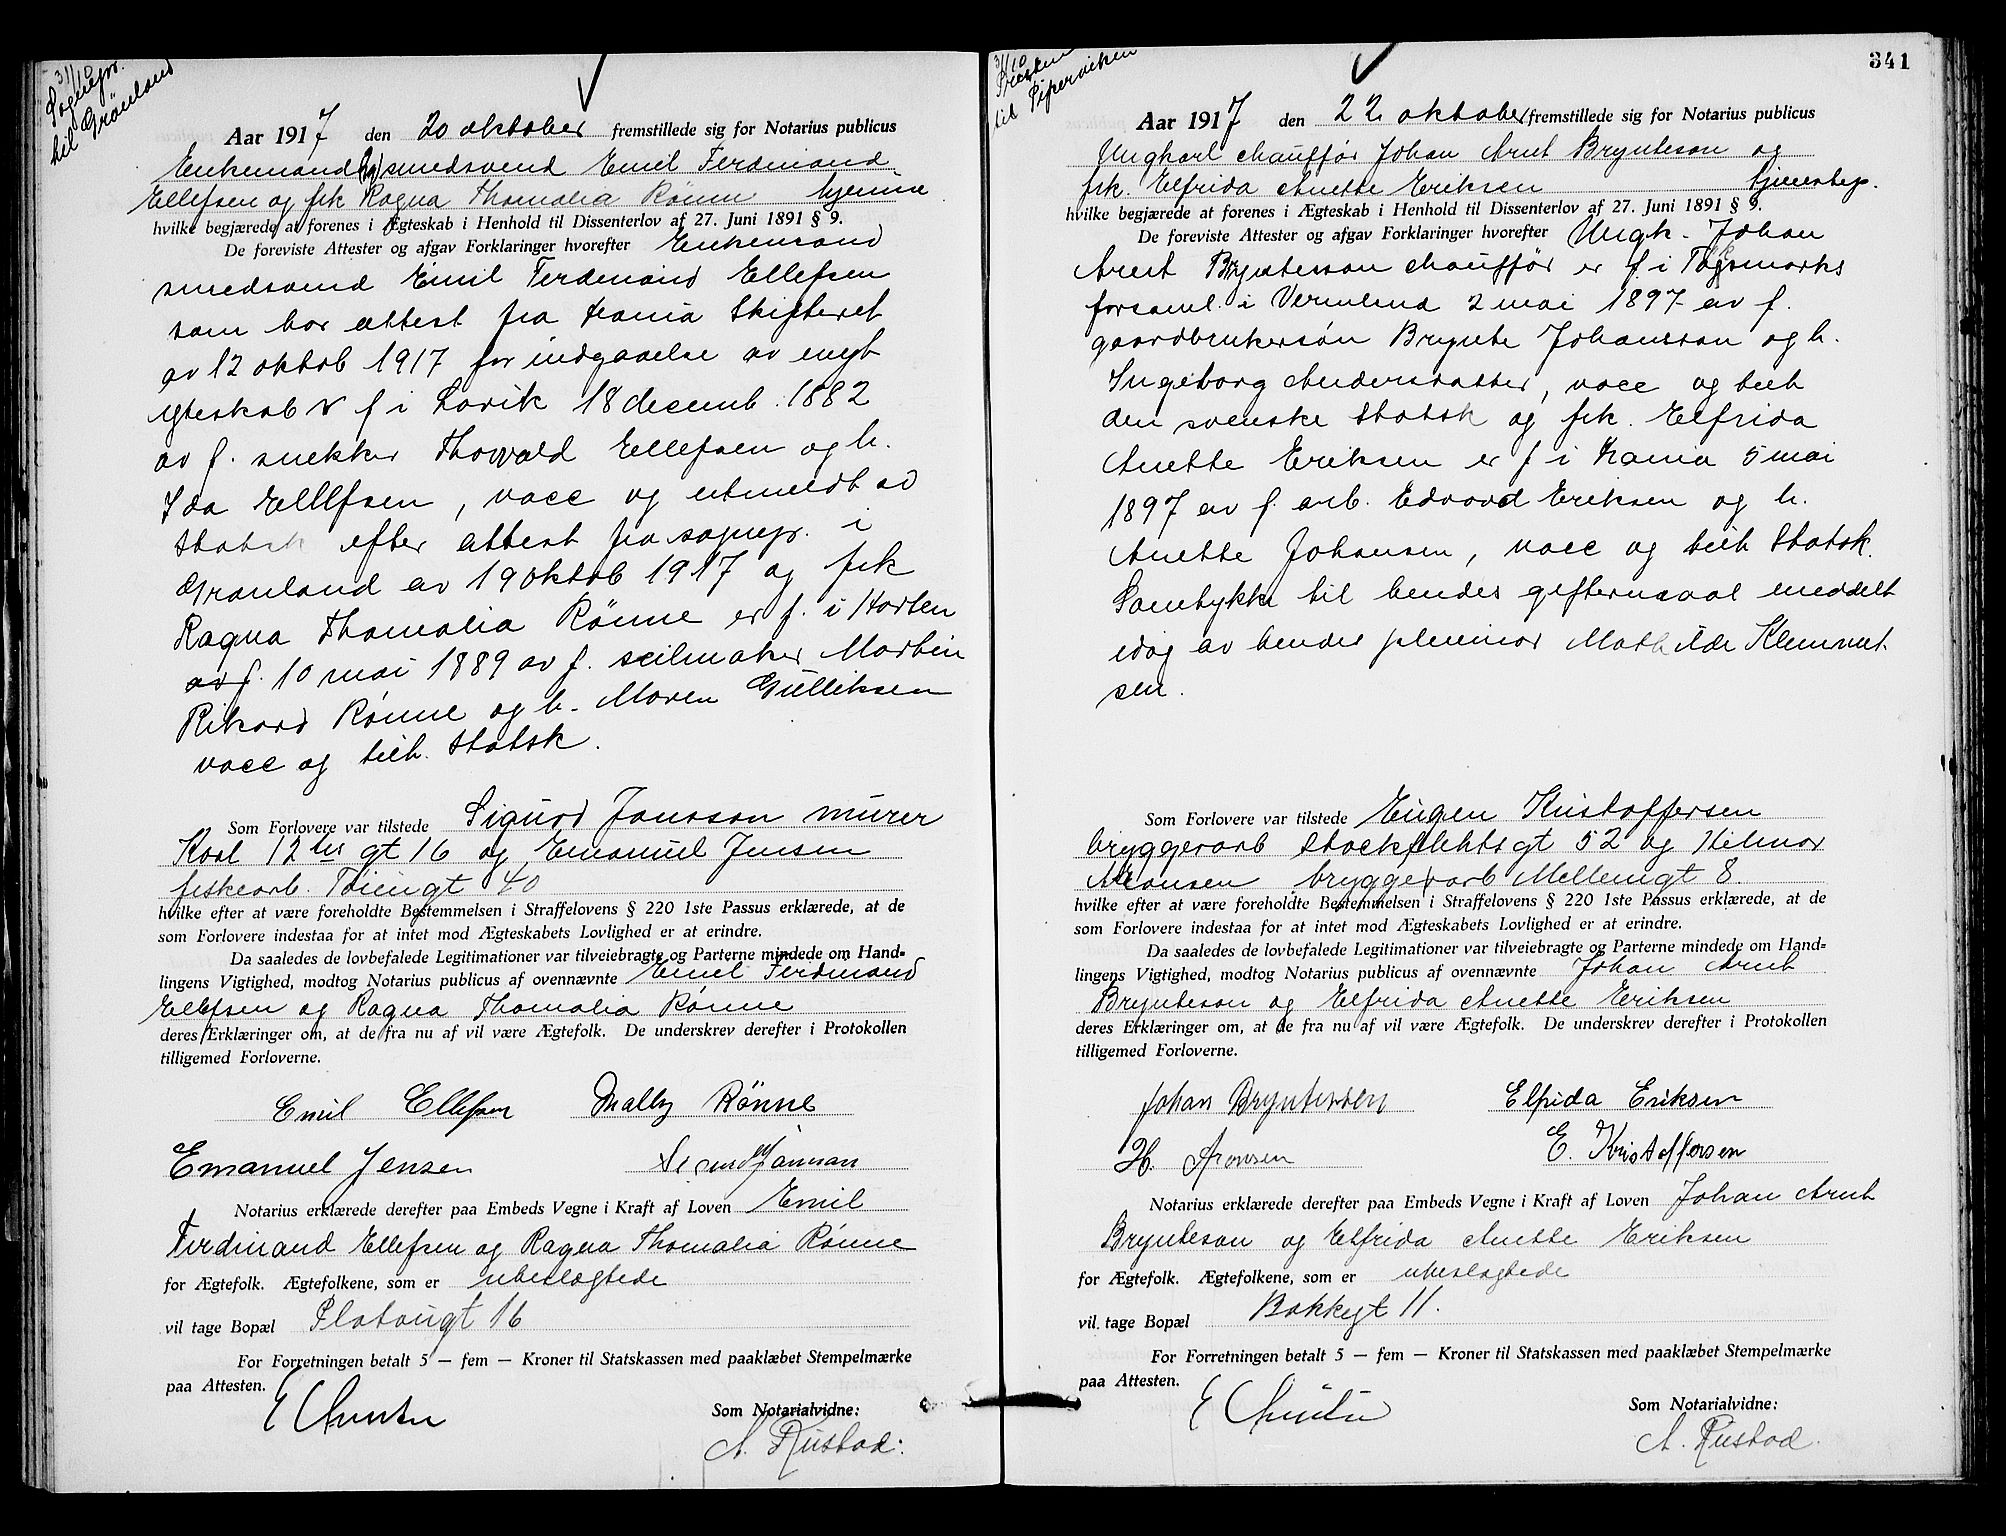 31/10
Sognepr.
til Grönland
Aar 1917 den 20 oktober fremstillede sig for Notarius publicus
Enkemand smedsvend Emil Ferdinand
Ellefsen og frk Ragna Thomalia Rønne hjemme
hvilke begjærede at forenes i Ægteskab i Henhold til Dissenterlov af 27. Juni 1891 § 9.
De foreviste Attester og afgav Forklaringer hvorefter Enkemand
smedsvend Emil Ferdinand Ellefsen
som har attest fra Krania Skifteret
av 12 oktob 1917 for indgaaelse av nyt
egteskab f i Larvik 18 decemb. 1882
av f. snekker Thorvald Ellefsen og h.
Ida Ellefsen, vacc og utmeldt av
Statsk efter attest fra sognepr. i
Grønland av 19 oktob 1917 og frk
Ragna Thomalia Rønne er f. i Horten
av f. 10 mai 1889 av f. seilmaker Martin
Rikard Rønne og h. Maren Gulliksen
vacc og tilh. Statsk.
Som Forlovere var tilstede Sigurd Jansson murer
Karl 12tes gt 16 og Emanuel Jensen
fiskearb. Töiengt 40
hvilke efter at være foreholdte Bestemmelsen i Straffelovens § 220 1ste Passus erklærede, at de
som Forlovere indestaa for at intet mod Ægteskabets Lovlighed er at erindre.
Da saaledes de lovbefalede Legitimationer var tilveiebragte og Parterne mindede om Hand-
lingens Vigtighed, modtog Notarius publicus af ovennævnte Emil Ferdinand
Ellefsen og Ragna Thomalia Rønne
deres Erklæringer om, at de fra nu af vil være Ægtefolk. De underskrev derefter i Protokollen
tilligemed Forloverne.
Emil Ellefsen Mally Rønne
Emanuel Jensen Sigurd Jansson
Notarius erklærede derefter paa Embeds Vegne i Kraft af Loven Emil
Ferdinand Ellefsen og Ragna Thomalia Rønne
for Ægtefolk. Ægtefolkene, som er ubeslægtede
vil tage Bopæl Platougt 16
For Forretningen betalt 5 — fem — Kroner til Statskassen med paaklæbet Stempelmærke
paa Attesten.
Som Notarialvidne:
A. Rustad.
341
31/10
Presten
til Piperviken
Aar 1917 den 22 oktober fremstillede sig for Notarius publicus
Ungkarl chauffør Johan Arnt Brynteson og
frk. Elfrida Anette Eriksen tjenestep.
hvilke begjærede at forenes i Ægteskab i Henhold til Dissenterlov af 27. Juni 1891 § 9.
De foreviste Attester og afgav Forklaringer hvorefter Ungk. Johan
Arnt Brynteson chauffør er f. i Tøjsmarks
forsaml. i Vermland 2 mai 1897 av f.
gaardbrukersøn Brynte Johansson og h.
Ingeborg Andersdatter, vacc og tilh
den svenske Statsk og frk. Elfrida
Anette Eriksen er f i Krania 5 mai
1897 av f. arb. Edvard Eriksen og h.
Anette Johansen, vacc og tilh Statsk.
Samtykke til hendes giftermaal meddelt
idag av hendes pleiemor Mathilde Klemmet-
sen.
Som Forlovere var tilstede Eugen Kristoffersen
bryggerarb Stockflethsgt 52 og Hilmar
Aronsen bryggerarb Møllerngt 8.
hvilke efter at være foreholdte Bestemmelsen i Straffelovens § 220 1ste Passus erklærede, at de
som Forlovere indestaa for at intet mod Ægteskabets Lovlighed er at erindre.
Da saaledes de lovbefalede Legitimationer var tilveiebragte og Parterne mindede om Hand-
lingens Vigtighed, modtog Notarius publicus af ovennævnte Johan Arnt
Brynteson og Elfrida Anette Eriksen
deres Erklæringer om, at de fra nu af vil være Ægtefolk. De underskrev derefter i Protokollen
tilligemed Forloverne.
Johan Bryntesson Elfrida Eriksen
H. Aronsen E. Kristoffersen
Notarius erklærede derefter paa Embeds Vegne i Kraft af Loven Johan Arnt
Brynteson og Elfrida Anette Eriksen
for Ægtefolk. Ægtefolkene, som er ubeslægtede
vil tage Bopæl Bakkegt 11.
For Forretningen betalt 5 — fem — Kroner til Statskassen med paaklæbet Stempelmærke
paa Attesten.
Som Notarialvidne:
A. Rustad.